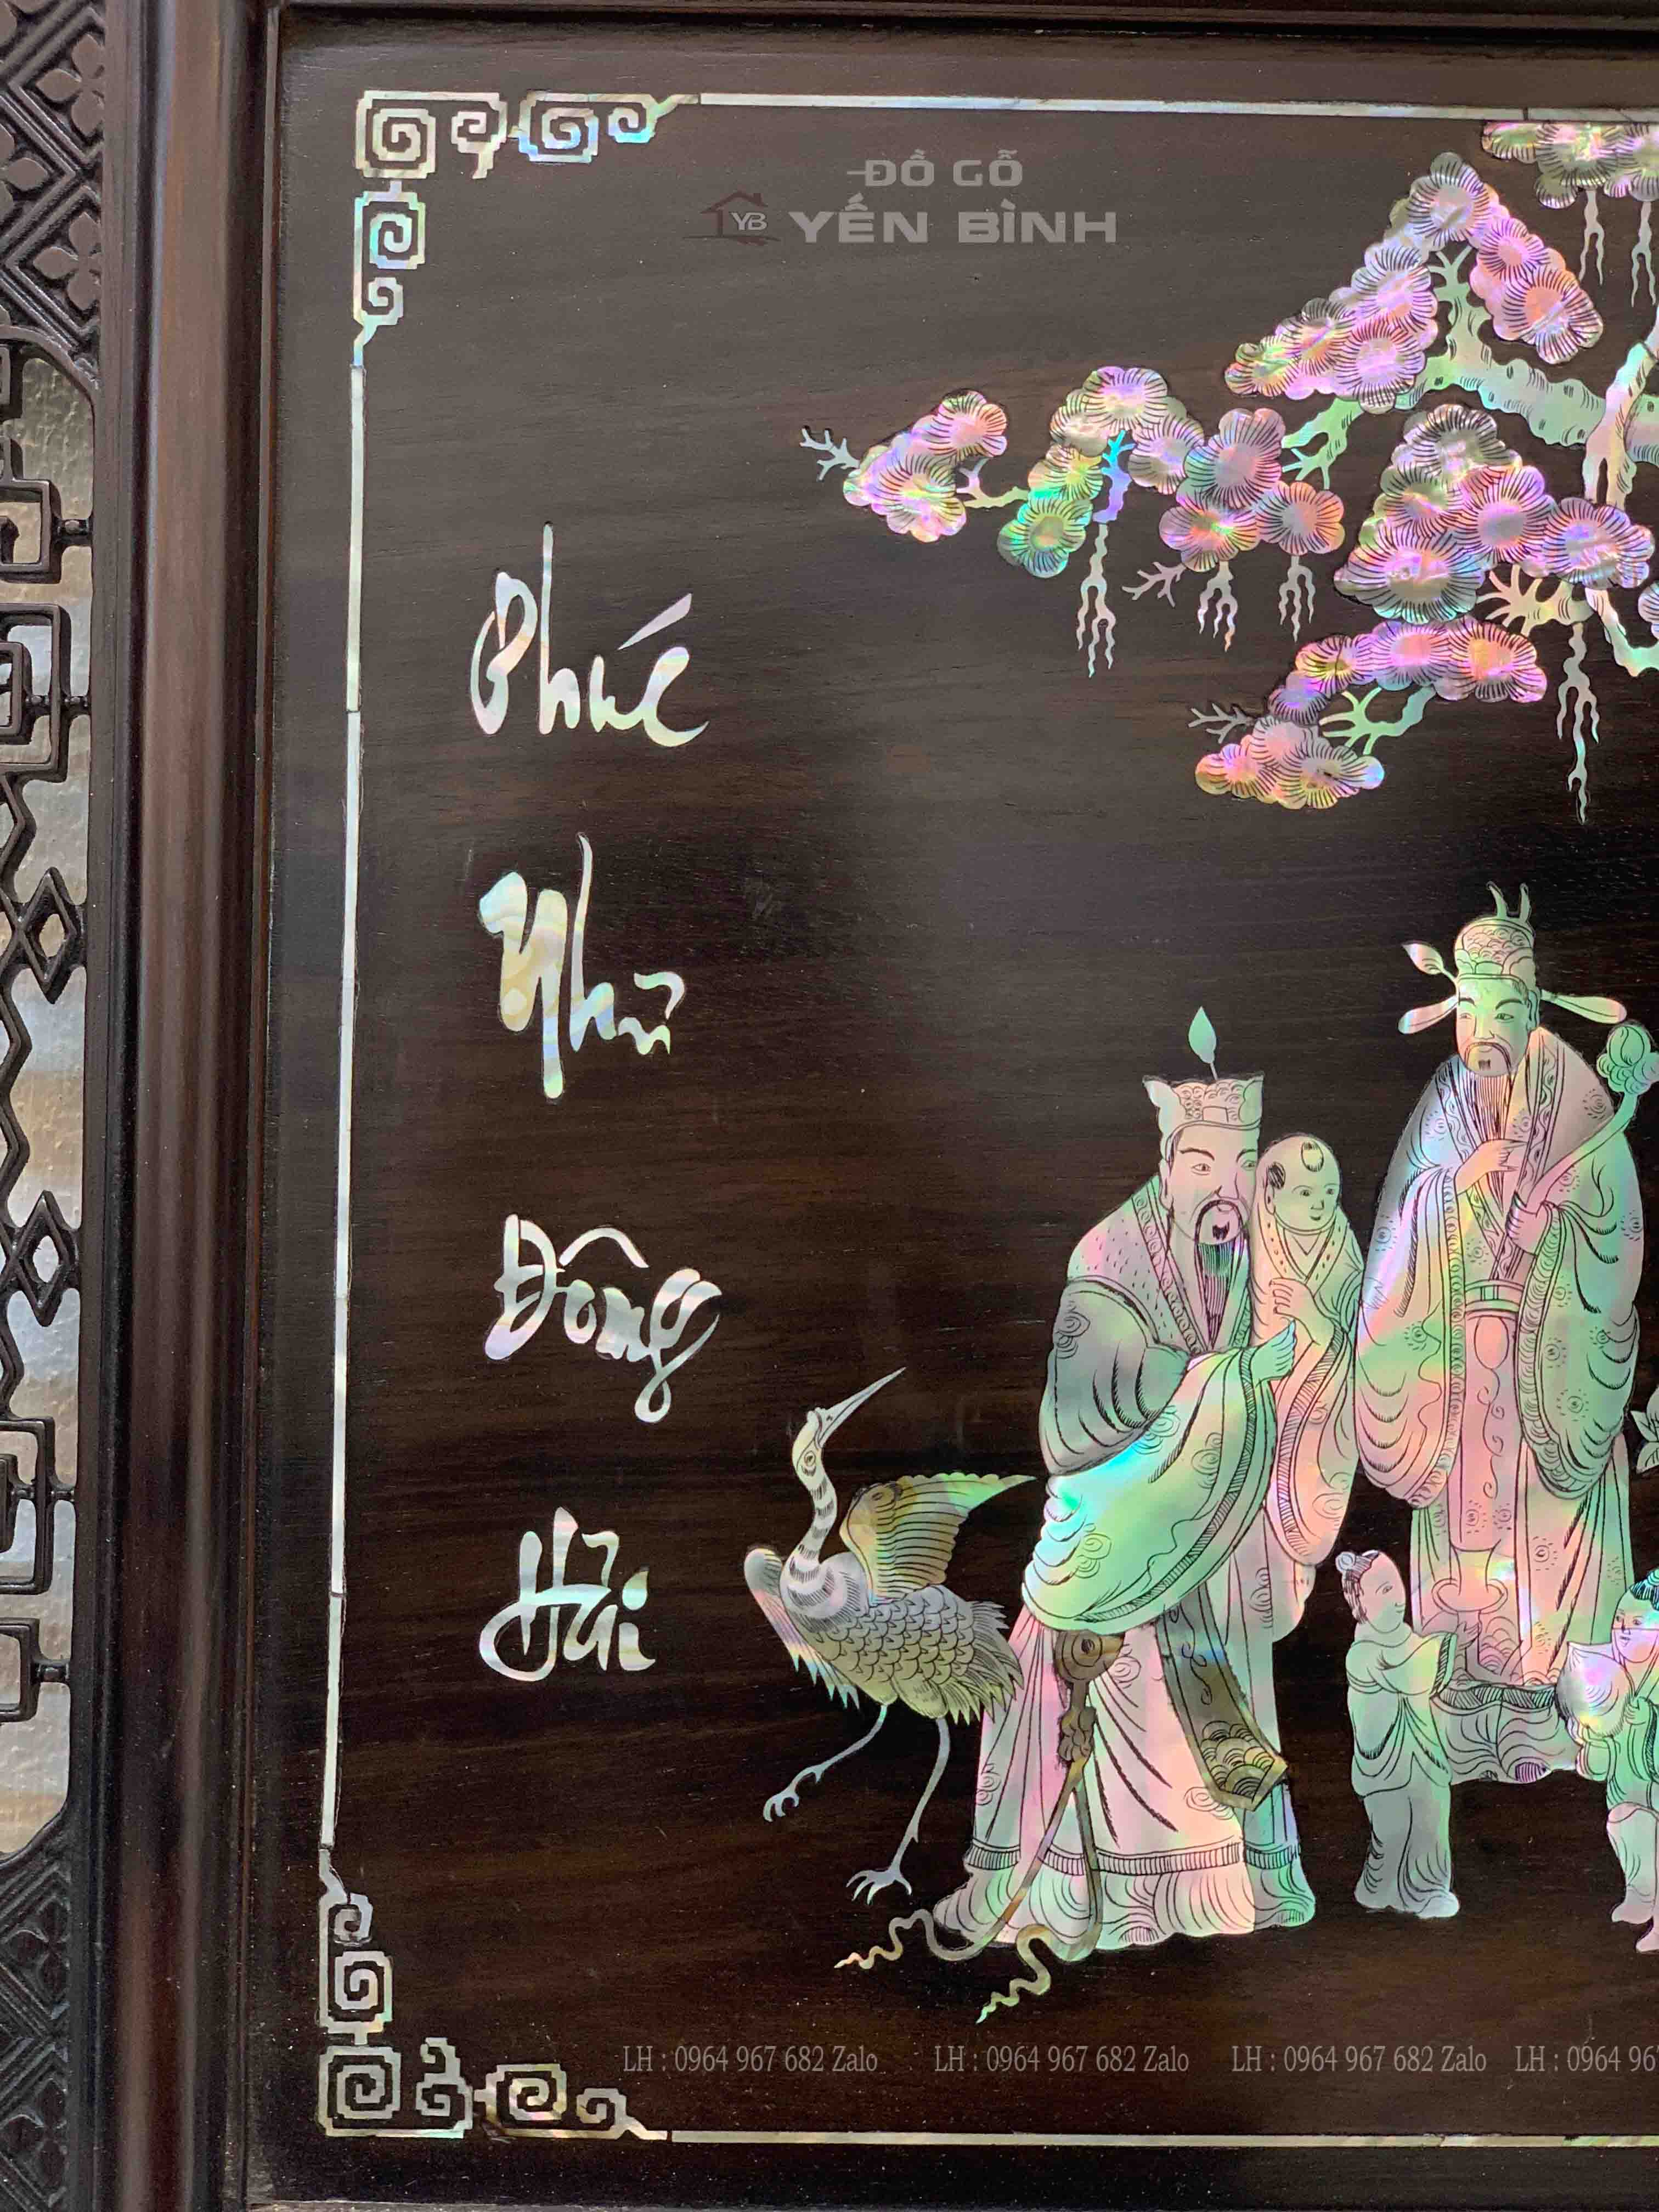 ĐỒ GỖ
YB YẾN BÌNH
Phúc
Như
Đông
Hải
LH : 0964 967 682 Zalo LH : 0964 967 682 Zalo LH : 0964 967 682 Zalo LH : 0964 96